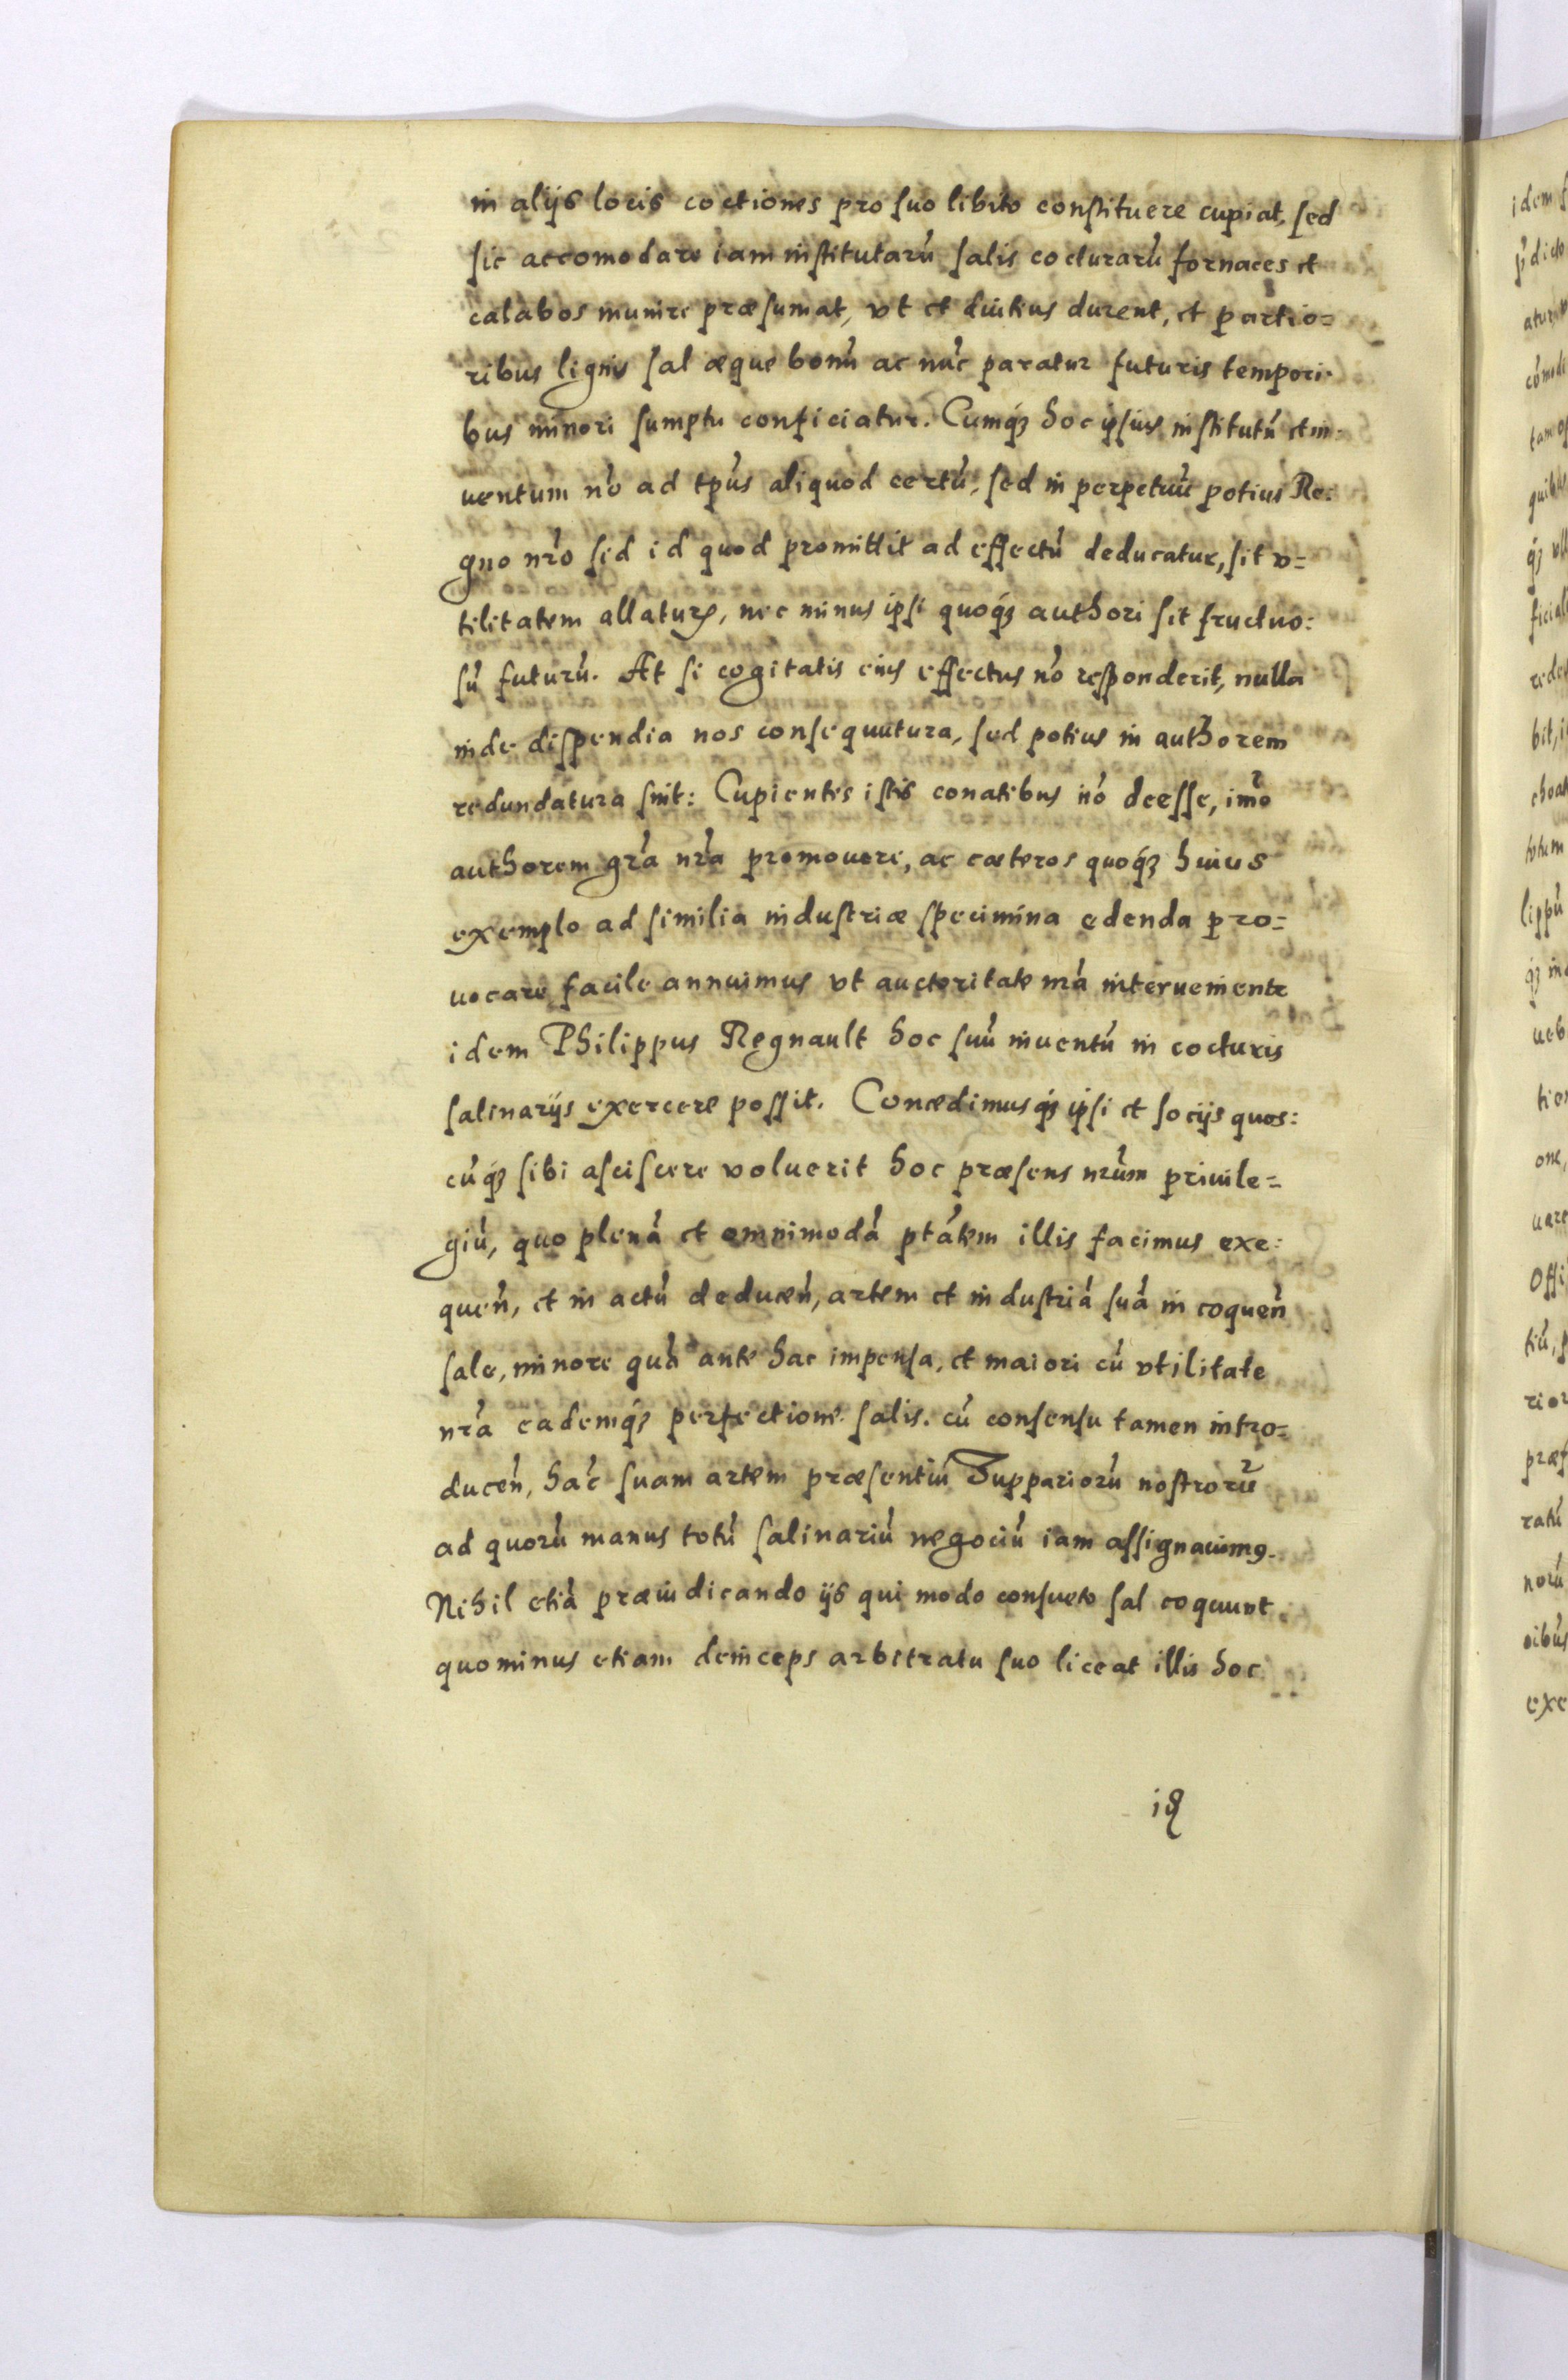 in alijs locis coctiones pro suo libito constituere cupiat, sed
sic accomodare iam institutarū salis cocturarū fornaces et
calabos munire præsumat, vt et diutius durent, et partio=
ribus lignis sal æque bonū ac nūc paratur futuris tempori-
bus minori sumptu conficiatur. Cumq́ꝫ hoc ipsius institutū et in-
uentum nō ad tp̄us aliquod certū, sed in perpetuū potius Re:
gno nr̄o sed id quod promittit ad effectū deducatur, sit v=
tilitatem allaturꝝ, nec minus ipsi quoq́ꝫ authori sit fructuo:
sū futurū. At si cogitatis eius effectus nō responderit, nulla
inde dispendia nos consequutura, sed potius in authorem
redundatura sint: Cupientes istis conatibus nō deesse, imō
authorem gr̄a nr̄a promouere, ac cæteros quoq́ꝫ huius
exemplo ad similia industriæ specimina edenda pro=
uocare facile annuimus vt auctoritate nr̄a interueniente
idem Philippus Regnault hoc suū inuentū in cocturis
salinarijs exercere possit. Concedimusq́ꝫ ipsi et socijs quos:
cūq́ꝫ sibi asciscere voluerit hoc præsens nr̄um priuile=
giū, quo plenā et omnimodā ptātem illis facimus exe:
quen̄, et in actū deducen̄, artem et industriā suā in coquen̄
sale, minore quā ante hac impensa, et maiori cū vtilitate
nr̄a eademq́ꝫ perfectione salis. cū consensu tamen intro=
ducen̄, hāc suam artem præsentiū Suppariorū nostrorū
ad quorū manus totū salinariū negociū iam assignauimꝰ.
Nihil etiā præiudicando ijs qui modo consueto sal coquunt
quominus etiam deinceps arbitratu suo liceat illis hoc